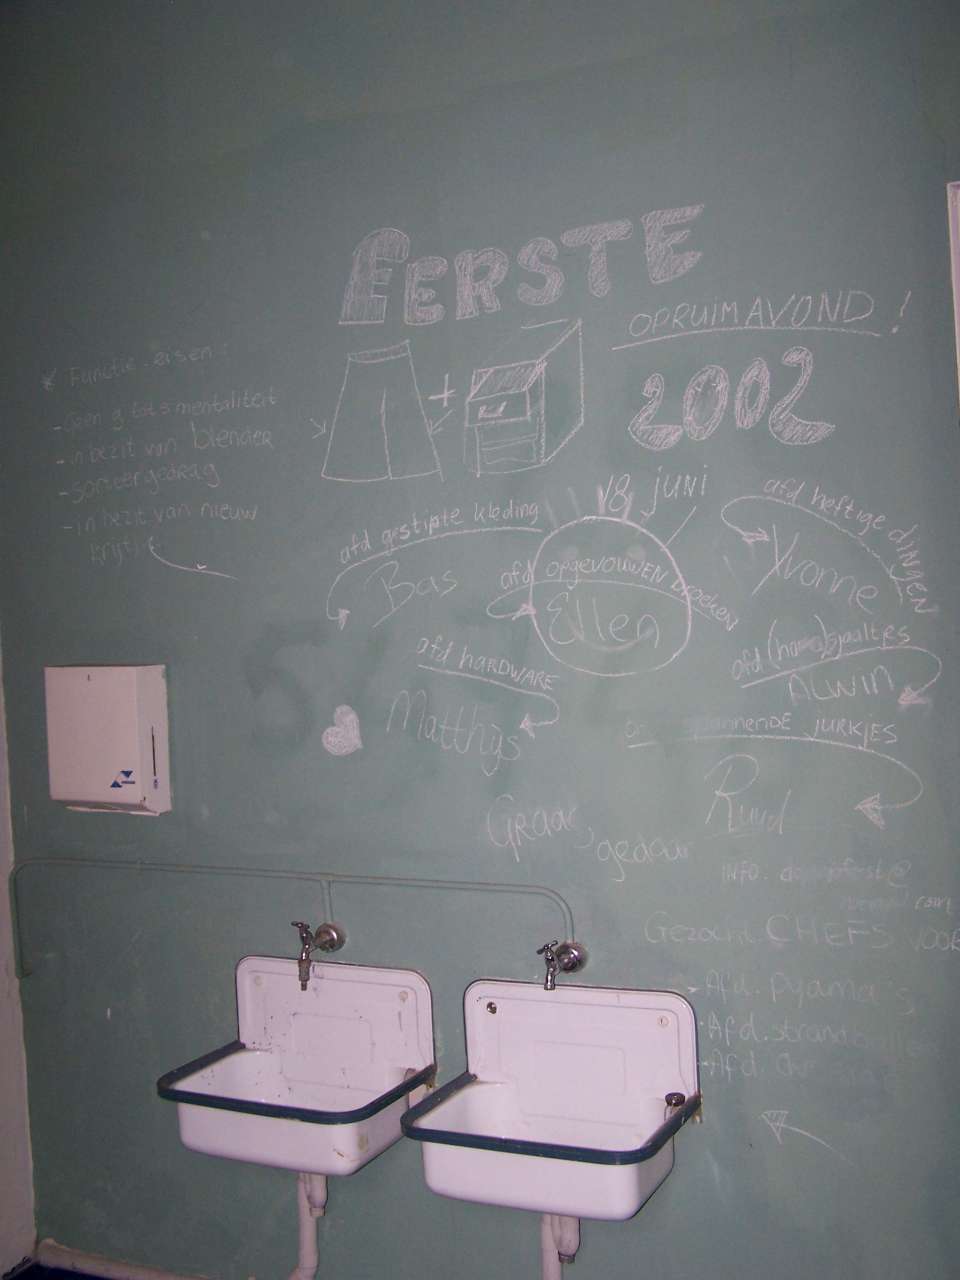 EERSTE
OPRUIMAVOND!
2002
18 juni
* Functie-eisen:
- Geen mentaliteit
- in bezit van blender
- sorteergedrag
- in bezit van nieuw
krijtje
afd gestipte kleding
Bas
afd opgevouwen broeken
Ellen
afd heftige dingen
Yvonne
afd hardware
Matthijs
afd sjaaltjes
ALWIN
spannende jurkjes
Ruud
Graag
gedaan
INFO.
Gezocht CHEFS VOOR
- Afd. pyama's
- Afd. strand
- Afd.